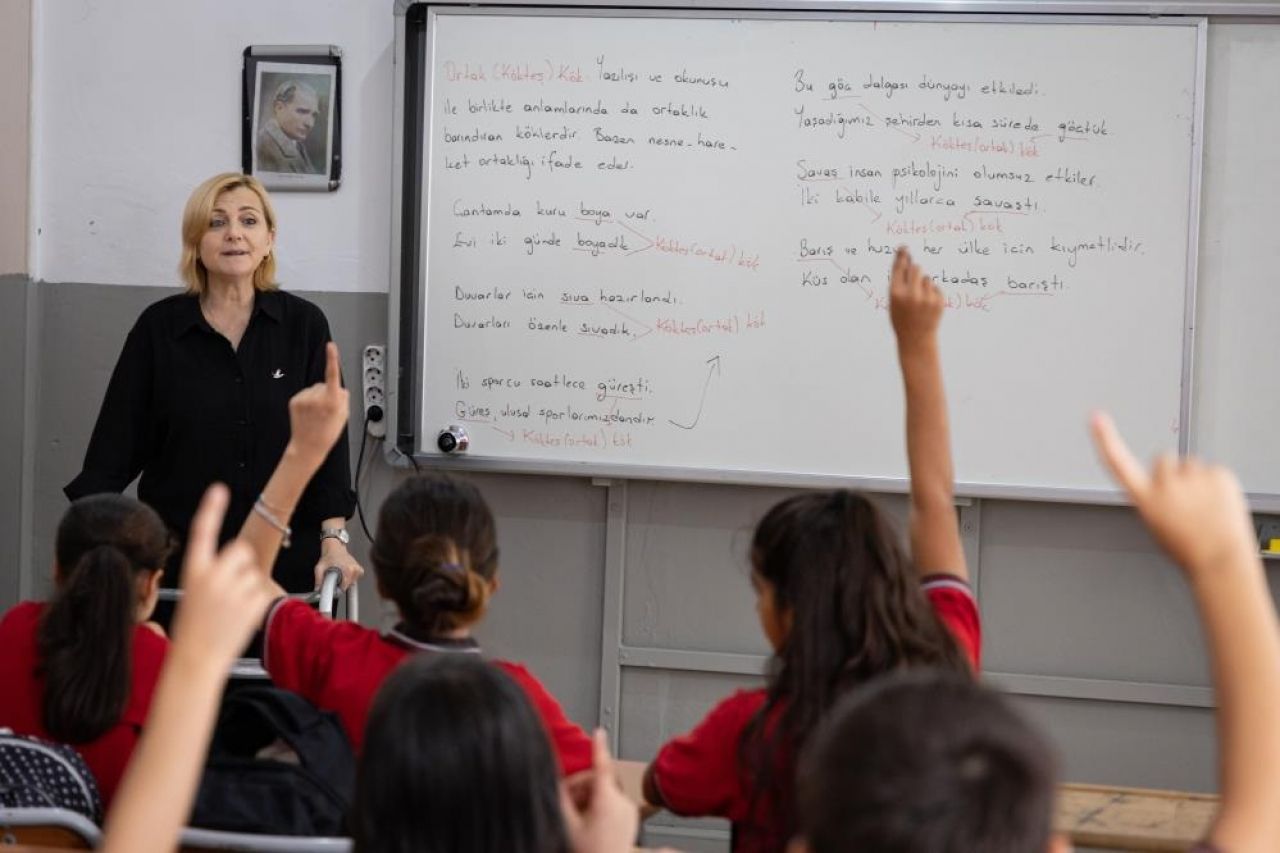 Ortak (Kökteş) Kök: Yazılışı ve okunuşu
ile birlikte anlamlarında da ortaklık
barındıran köklerdir. Bazen nesne-hare-
ket ortaklığı ifade eder.
Çantamda kuru boya var.
Evi iki günde boyadık
Kökteş(ortak) kök
Duvarlar için sıva hazırlandı.
Duvarları özenle sıvadık.
Kökteş(ortak) kök
İki sporcu saatlece güreşti.
Güreş, ulusal sporlarımızdandır.
Kökteş(ortak) kök
Bu göç dalgası dünyayı etkiledi.
Yaşadığımız şehirden kısa sürede göçtük.
Kökteş(ortak) kök
Savaş insan psikolojini olumsuz etkiler.
İki kabile yıllarca savaştı.
Kökteş(ortak) kök
Barış ve her ülke için kıymetlidir.
Küs olan barıştı.
kök